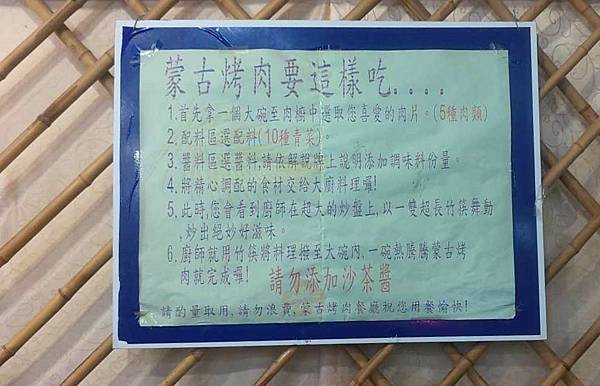 蒙古烤肉要這樣吃....
1.首先拿一個大碗至肉櫥中選取您喜愛的肉片。(5種肉類)
2.配料區選配料(10種青菜)。
3.醬料區選醬料,請依解說牌上說明添加調味料份量。
4.將精心調配的食材交給大廚料理囉!
5.此時,您會看到廚師在超大的炒盤上,以一雙超長竹筷舞動
,炒出絕妙好滋味。
6.廚師就用竹筷將料理撥至大碗內,一碗熱騰騰蒙古烤
肉就完成囉!
請勿添加沙茶醬
請酌量取用,請勿浪費,蒙古烤肉餐廳祝您用餐愉快!